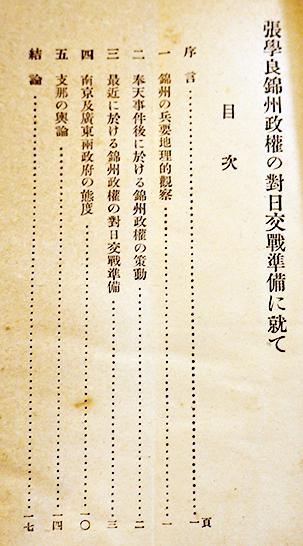 張學良錦州政權の對日交戰準備に就て
目次
頁
序言……一
一 錦州の兵要地理的觀察……一
二 奉天事件後に於ける錦州政權の策動……二
三 最近に於ける錦州政權の對日交戰準備……三
四 南京及廣東兩政府の態度……一〇
五 支那の輿論……一四
結論……一七